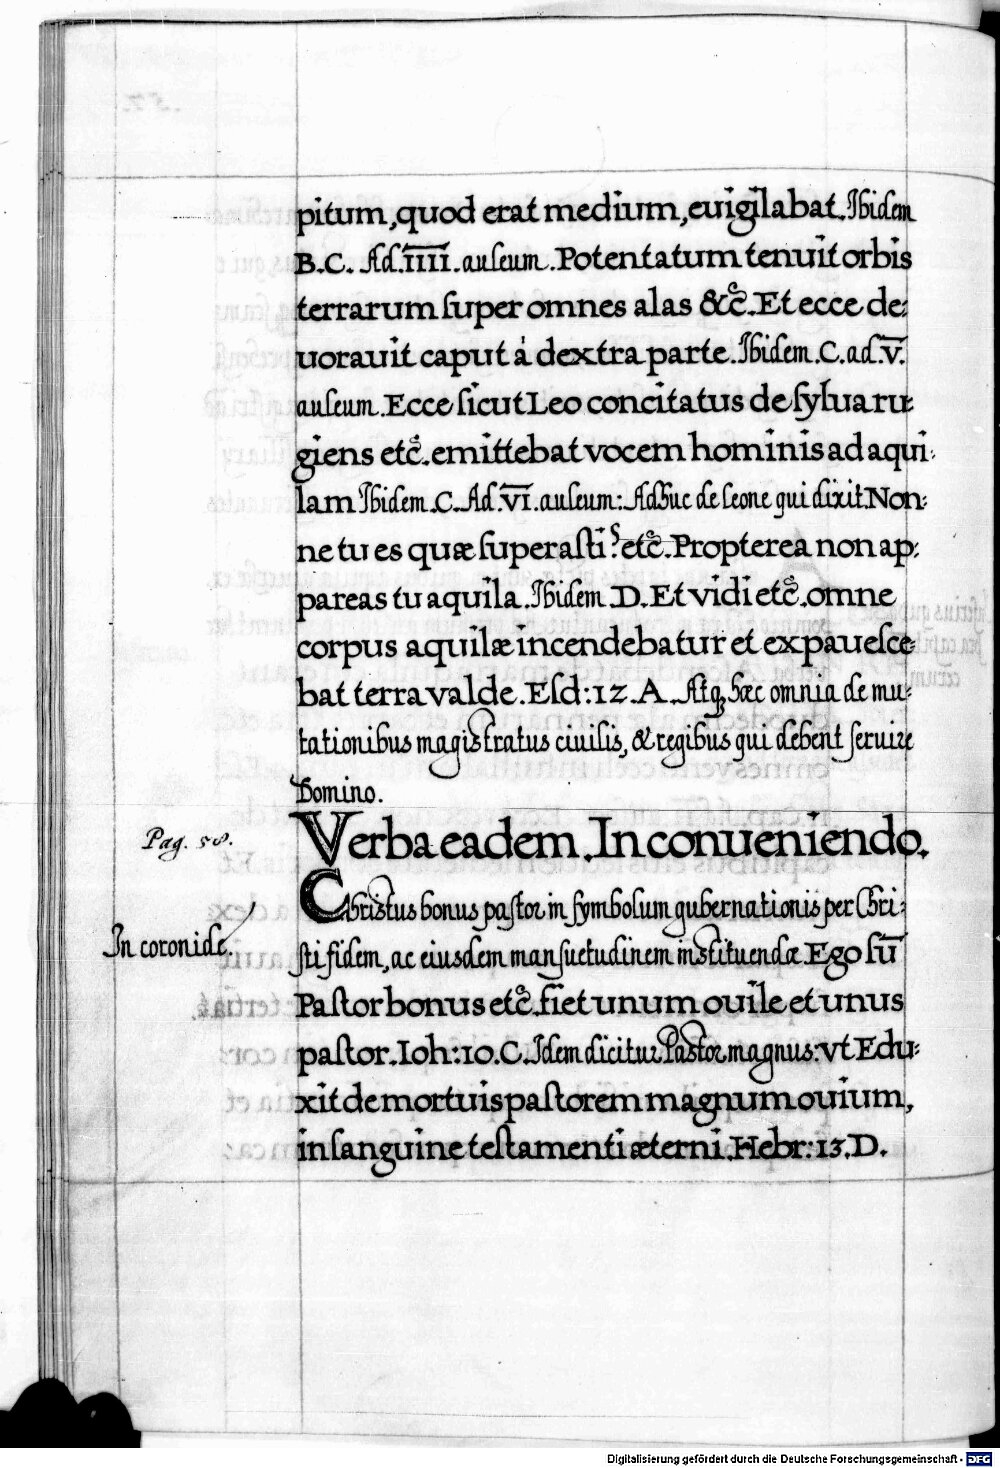 pitum, quod erat medium, euigilabat. Ibidem
B.C. Ad. IIII. auleum. Potentatum tenuit orbis
terrarum super omnes alas &c̃. Et ecce de:
uorauit caput á dextra parte. Ibidem. C. ad. V̅.
auleum. Ecce sicut Leo concitatus de sylua ru:
giens etc̃. emittebat vocem hominis ad aqui:
lam Ibidem. C. Ad. V̅I̅. auleum: Adhuc de leone qui dixit. Non:
ne tu es quæ superasti? etc̃. Propterea non ap:
pareas tu aquila. Ibidem D. Et vidi etc̃. omne
corpus aquilæ incendebatur et expauesce:
bat terra valde. Esd: 12. A. Atqꝫ hæc omnia de mu:
tationibus magistratus ciuilis, & regibus qui debent seruire
Domino.
Pag. 58.
Verba eadem. In conueniendo.
Christus bonus pastor in symbolum gubernationis per Chri:
In coronide.
sti fidem, ac eiusdem mansuetudinem instituendæ Ego sū
Pastor bonus etc̃. fiet unum ouile et unus
pastor. Ioh: 10. C. Idem dicitur Pastor magnus: vt Edu:
xit de mortuis pastorem magnum ouium,
in sanguine testamenti æterni. Hebr: 13. D.
Digitalisierung gefördert durch die Deutsche Forschungsgemeinschaft - DFG